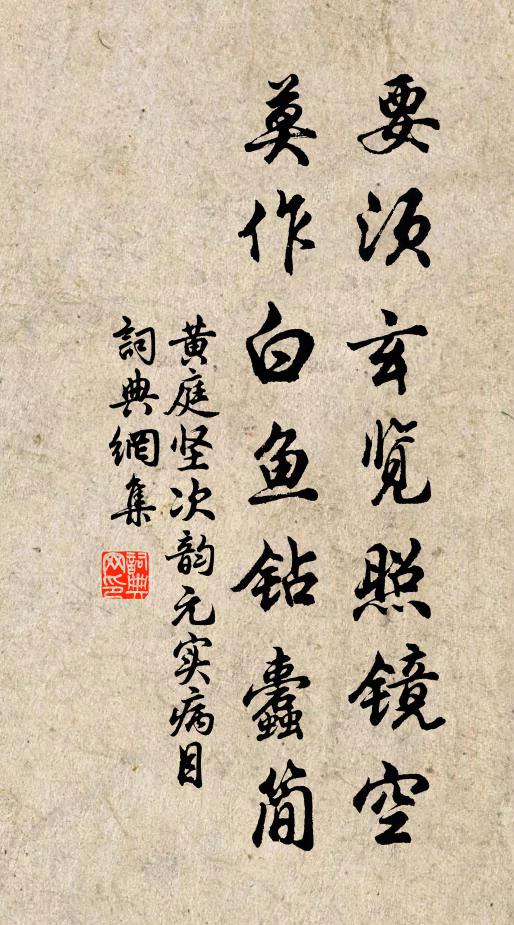 要须玄览照镜空
莫作白鱼钻蠹简
黄庭坚次韵元实病目
詞典網集
詞典网印